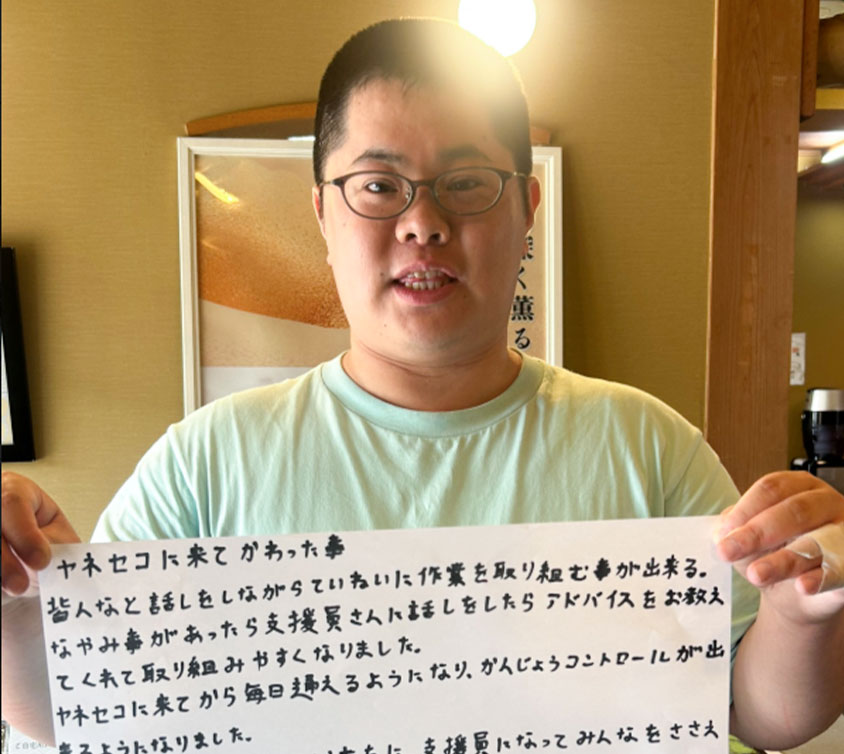 く薫る
ヤネセコに来てかわった事
皆人なと話しをしながらていねいに作業を取り組む事が出来る。
なやみ事があったら支援員さんに話しをしたらアドバイスをお教え
てくれて取り組みやすくなりました。
ヤネセコに来てから毎日通えるようになり、かんじょうコントロールが出
来るようになりました。
支援員になってみんなをささえ